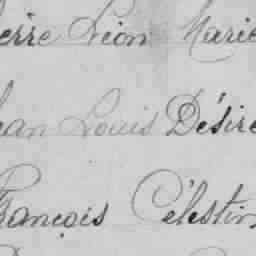 ierre Léon Marie
ean Louis Désiré
François Célestin